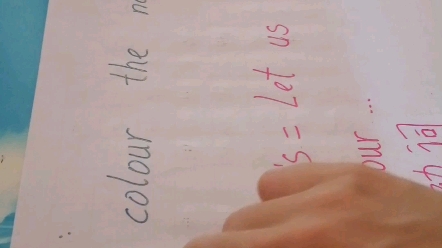 colour the
's = Let us
our ...